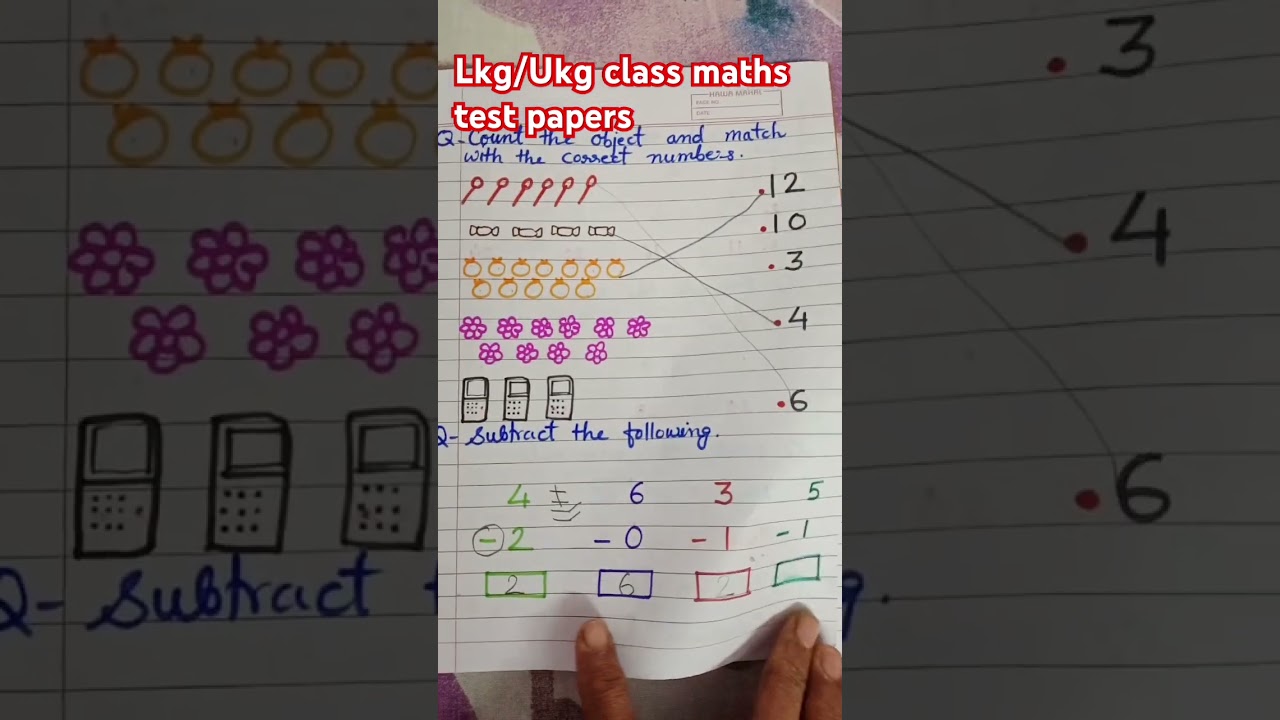 Lkg/Ukg class maths
test papers
HAWA MAHAL
PAGE NO.
DATE
Q- Count the object and match
with the correct numbers.
.12
.10
.3
.4
.6
Q- Subtract the following.
4 6 3 5
- 2 - 0 - 1 - 1
2 6 2